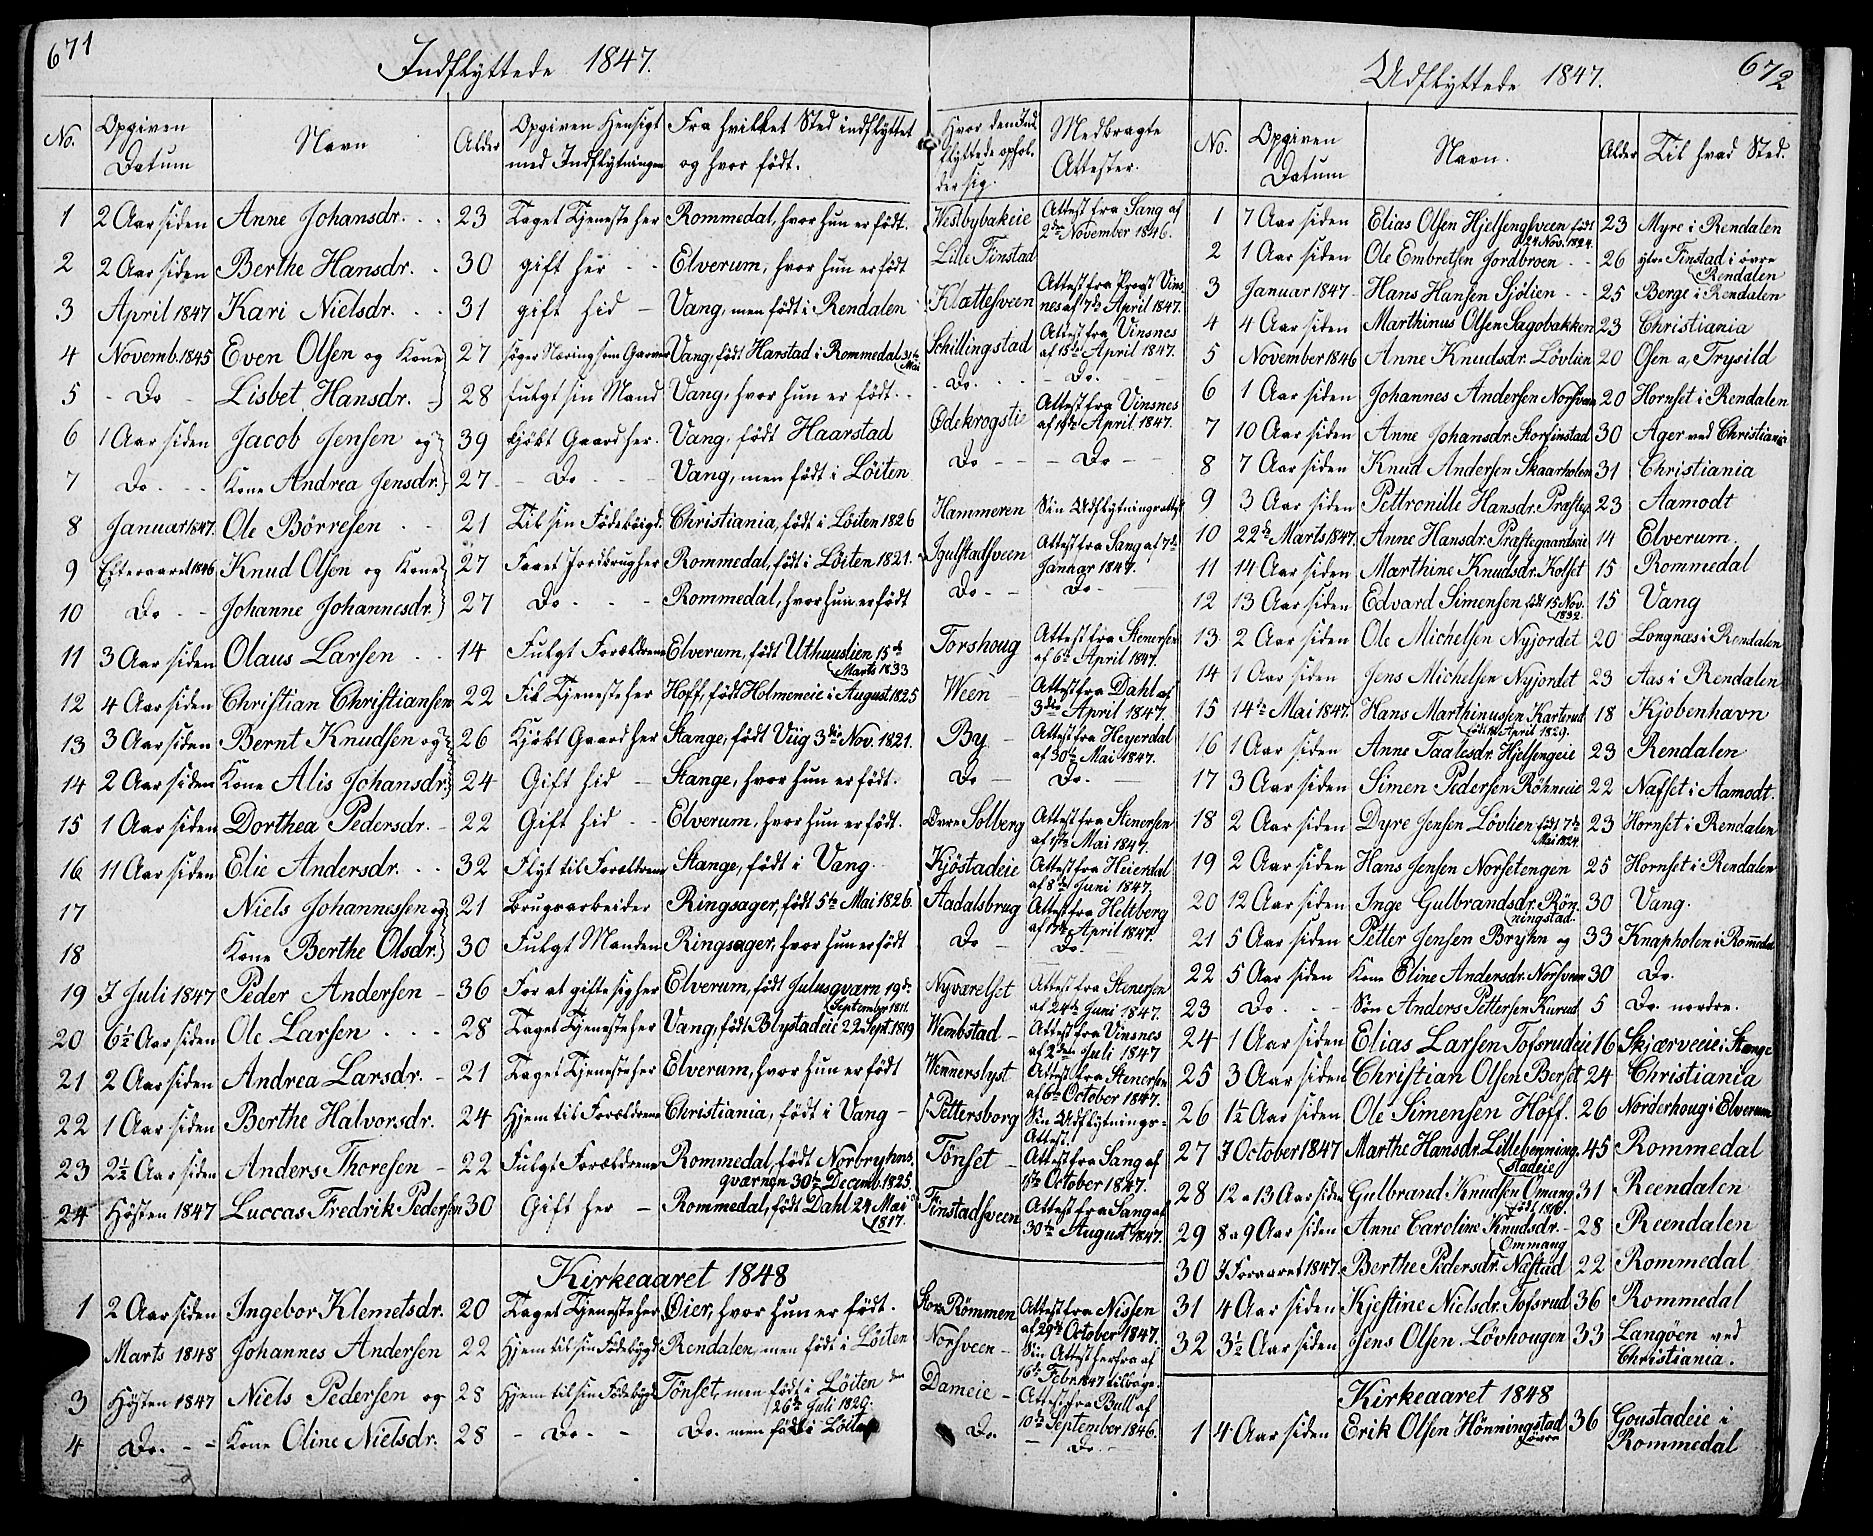 671
Indflyttede 1847.
No. | Opgiven Datum | Navn | Alder | Opgiven Hensigt med Indflytningen | Fra hvilket Sted indflyttet og hvor født. | Hvor den Indflyttede opholder sig. | Medbragte Attester.
1 | 2 Aar siden | Anne Johansdr. | 23 | Taget Tjeneste her | Rommedal, hvor hun er født. | Westbybakeie | Attest fra Sang af 2den November 1846.
2 | 2 Aar siden | Berthe Hansdr. | 30 | gift her | Elverum, hvor hun er født | Lille Finstad
3 | April 1847 | Kari Nielsdr. | 31 | gift hid | Vang, men født i Rendalen | Klættesveen | Attest fra Provst Vinsnes af 7de April 1847.
4 | Novemb. 1845 | Even Olsen og Kone | 27 | søger Næring som Garver | Vang, født Harstad i Rommedal 31te Mai | Schillingstad | Attest fra Vinsnes af 15de April 1847.
5 | Do | Lisbet Hansdr. | 28 | fulgt sin Mand | Vang, hvor hun er født. | Do. | Do.
6 | 1 Aar siden | Jacob Jensen og | 39 | kjøbt Gaard her. | Vang, født Haarstad | Ødekrogstie | Attest fra Vinsnes af 19de April 1847.
7 | Do | Kone Andrea Jensdr. | 27 | Do | Vang, men født i Löiten | Do | Do
8 | Januar 1847. | Ole Börresen | 21 | Til sin Fødebøigd. | Christiania, født i Löiten 1826 | Hammeren | Sin Udflytningsattest
9 | Efteraaret 1846 | Knud Olsen og Kone | 27 | Faaet Jordbrug her | Rommedal, født i Löiten 1821. | Igulstadsveen | Attest fra Sang af 7de Januar 1847.
10 | Do | Johanne Johannesdr. | 27 | Do | Rommedal, hvor hun er født | Do | Do
11 | 3 Aar siden | Olaus Larsen | 14 | Fulgt Forældrene | Elverum, født Uthuuslien 15de Marts 1833 | Torshoug | Attest fra Stenersen af 6te April 1847.
12 | 4 Aar siden | Christian Christiansen | 22 | Fik Tjeneste her | Hoff, født Holmeneie i August 1825 | Ween | Attest fra Dahl af 3die April 1847.
13 | 3 Aar siden | Bernt Knudsen og | 26 | Kjøbt Gaard her | Stange, født Uiig 3die Nov. 1821. | By | Attest fra Heyerdal af 30te Mai 1847.
14 | 2 Aar siden | Kone Alis Johansdr. | 24 | Gift hid | Stange, hvor hun er født. | Do | Do.
15 | 1 Aar siden | Dorthea Pedersdr. | 22 | Gift hid | Elverum, hvor hun er født. | Øvre Solberg | Attest fra Stenersen af 1ste Mai 1847.
16 | 11 Aar siden | Elie Andersdr. | 32 | Flyt til Forældrene | Stange, født i Vang | Kjöstadeie | Attest fra Heierdal af 8de Juni 1847.
17 | Niels Johannessen og | 21 | Brugsarbeider | Ringsager, født 5te Mai 1826. | Aadalsbrug | Attest fra Heltberg af 17de April 1847.
18 | Kone Berthe Olsdr. | 30 | Fulgt Manden | Ringsager, hvor hun er født | Do | Do
19 | I Juli 1847 | Peder Andersen | 36 | For at gifte sig her | Elverum, født Julusqværn 19de September 1811. | Nyværelset | Attest fra Stenersen af 24de Juni 1847.
20 | 6½ Aar siden | Ole Larsen | 28 | Taget Tjeneste her | Vang, født Blystadeie 22 Sept. 1819 | Wembstad | Attest fra Vinsnes af 2den Juli 1847
21 | 2 Aar siden | Andrea Larsdr. | 21 | Taget Tjeneste her | Elverum, hvor hun er født | Wennerslyst | Attest fra Stenersen af 6te October 1847.
22 | 1 Aar siden | Berthe Halvorsdr. | 24 | Hjem til Forældrene | Christiania, født i Vang | Pettersborg | Sin Udflytnings-Attest.
23 | 2½ Aar siden | Anders Thoresen | 22 | Fulgt Forældrene | Rommedal, født Norbryhnsqværnen 30te Decemb. 1825. | Tönset | Attest fra Sang af 1ste October 1847.
24 | Høsten 1847 | Luccas Fredrik Pedersen | 30 | Gift her | Rommedal, født Dahl 24 Mai 1817. | Finstadsveen | Attest fra Sang af 30te August 1847.
Kirkeaaret 1848
1 | 2 Aar siden | Ingebor Klemetsdr. | 20 | Taget Tjeneste her | Øier, hvor hun er født. | Store Römmen | Attest fra Nissen af 29de October 1847.
Marts 1848 | Johannes Andersen | 22 | Hjem til sin Fødebygd | Rendalen, men født i Löiten | Norsveen | Sin Attest herfra af 16de Febr. 1847 tilbage.
3 | Høsten 1847 | Niels Pedersen og | 28 | Hjem til sin Fødebygd | Tönset, men født i Löiten den 26de Juli 1820. | Dameie | Attest fra Bull af 10de September 1846.
4 | Do. | Kone Oline Nielsdr. | 28 | Do | Do. men født i Löiten | Do. | Do.
672
Udflyttede 1847.
No. | Opgiven Datum | Navn. | Alder | Til hvad Sted.
1 | 7 Aar siden | Elias Olsen Hjelsengsveen født 24 Nov. 1824. | 23 | Myre i Rendalen
2 | 1 Aar siden | Ole Embretsen Jordbroen | 26 | ytre Finstad i øvre Rendalen
3 | Januar 1847 | Hans Hansen Sjölien | 25 | Berge i Rendalen
4 | 4 Aar siden | Marthinus Olsen Sagobakken | 23 | Christiania
5 | November 1846 | Anne Knudsdr. Lövlien | 20 | Osen a, Trysild
6 | 1 Aar siden | Johannes Andersen Norsveen | 20 | Hornset i Rendalen
7 | 10 Aar siden | Anne Johansdr. Storfinstad | 30 | Ager ved Christiania
8 | 7 Aar siden | Knud Andersen Skaarholen | 31 | Christiania
9 | 3 Aar siden | Pettronille Hansdr. Præsteg. | 23 | Aamodt
10 | 22de Marts 1847. | Anne Hansdr. Præstegaardseie | 14 | Elverum.
11 | 14 Aar siden | Marthine Knudsdr. Kolset | 15 | Rommedal
12 | 13 Aar siden | Edvard Simensen født 15 Nov. 1832. | 15 | Vang
13 | 2 Aar siden | Ole Michelsen Nyjordet | 20 | Longnæs i Rendalen
14 | 1 Aar siden | Jens Michelsen Nyjordet | 23 | Aas i Rendalen
15 | 14de Mai 1847. | Hans Marthinussen Karterud født April 1829. | 18 | Kjøbenhavn
16 | 1 Aar siden | Anne Taalesdr. Hjelsengeie | 23 | Rendalen
17 | 3 Aar siden | Simen Pedersen Röhneeie | 22 | Nafset i Aamodt.
18 | 2 Aar siden | Dyre Jensen Lövlien født 7de Mai 1824. | 23 | Hornset i Rendalen
19 | 2 Aar siden | Hans Jensen Norsetengen | 25 | Hornset i Rendalen
20 | 12 Aar siden | Inge Gulbrandsdr. Rönningstad. | 30 | Vang.
21 | 5 Aar siden | Petter Jensen Bryhn og | 33 | Knapholen i Romedal
22 | 5 Aar siden | Kone Eline Andersdr. Norsveen | 30 | Do.
23 | Do. | Søn Anders Pettersen Kurud | 5 | Do. nordre.
24 | 1 Aar siden | Elias Larsen Tofsrudeie | 16 | Skjærveeie i Stange
25 | 3 Aar siden | Christian Olsen Berset | 24 | Christiania
26 | 1½ Aar siden | Ole Simensen Hoff. | 26 | Norderhoug i Elverum
27 | I October 1847 | Marthe Hansdr. Lillebenningstadeie | 45 | Rommedal
28 | 12 a 13 Aar siden | Gulbrand Knudsen Omang født 1816. | 31 | Reendalen
29 | 8 a 9 Aar siden | Anne Caroline Knudsdr. Ommang | 28 | Reendalen
30 | I Foraaret 1847. | Berthe Pedersdr. Næstad | 22 | Rommedal
31 | 4 Aar siden | Kjestine Nielsdr. Tofsrud | 36 | Rommedal
32 | 3½ Aar siden | Jens Olsen Lövhougen | 33 | Langöen ved Christiania.
Kirkeaaret 1848
1 | 4 Aar siden | Erik Olsen Hönningstad øvre | 36 | Goustadeie i Rommedal